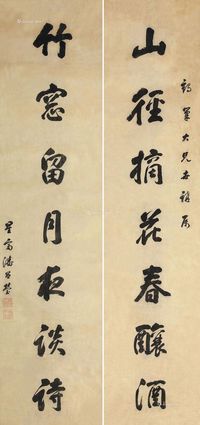 大兄 雅屬
山徑摘花春釀酒
竹窻留月夜談詩
星齋潘曾瑩